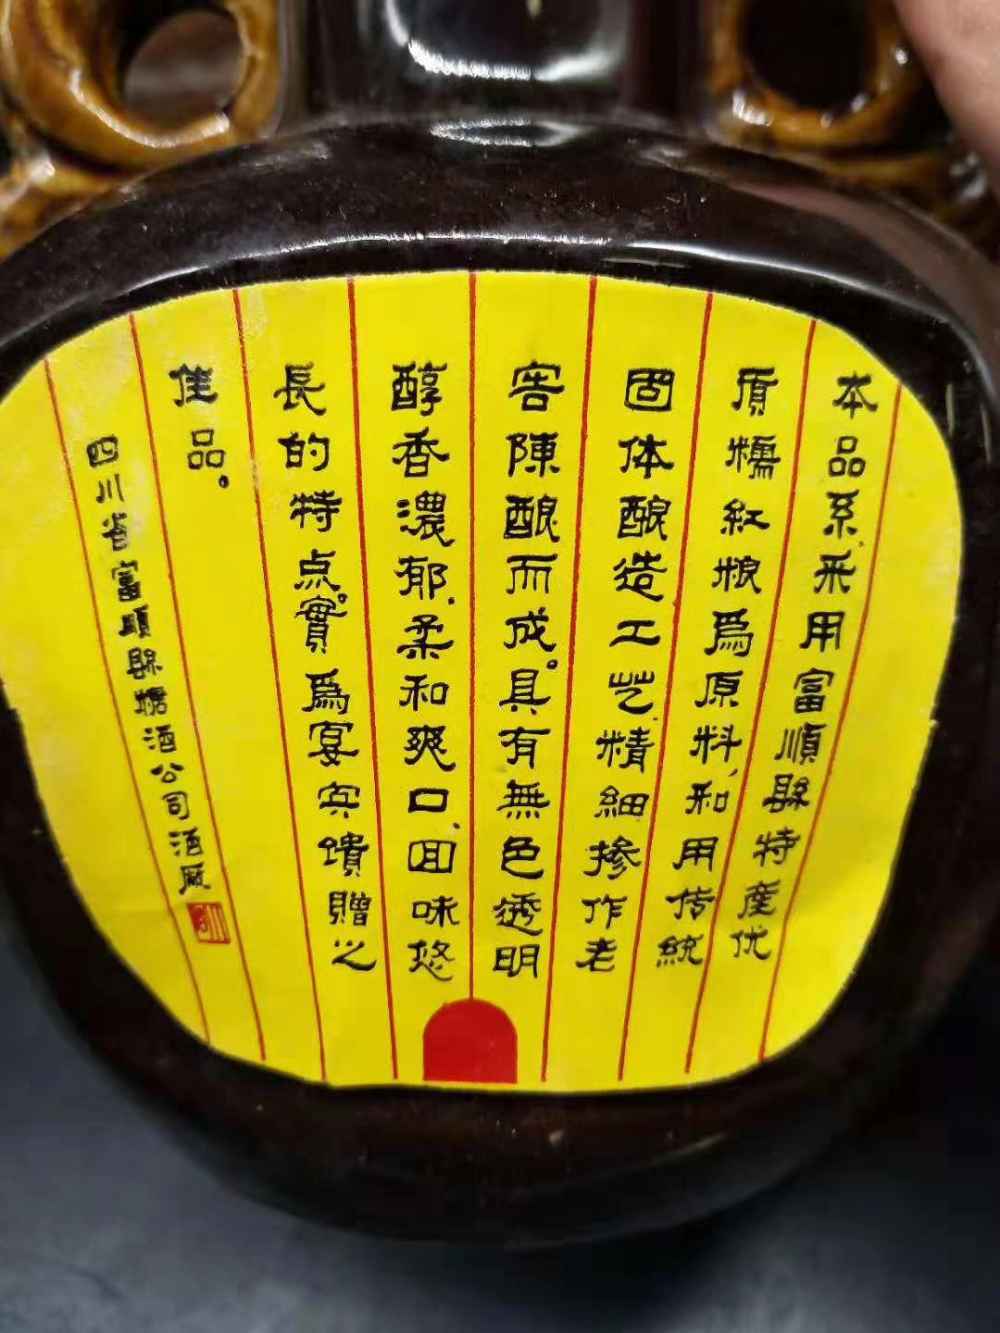 本品系采用富順縣特産优
质糯红粮爲原料,和用传統
固体酿造工艺.精細掺作老
窖陳酿而成。具有無色透明
醇香濃郁.柔和爽口.回味悠
長的特点。實爲宴宾馈贈之
佳品。
四川省富順縣糖酒公司酒厰